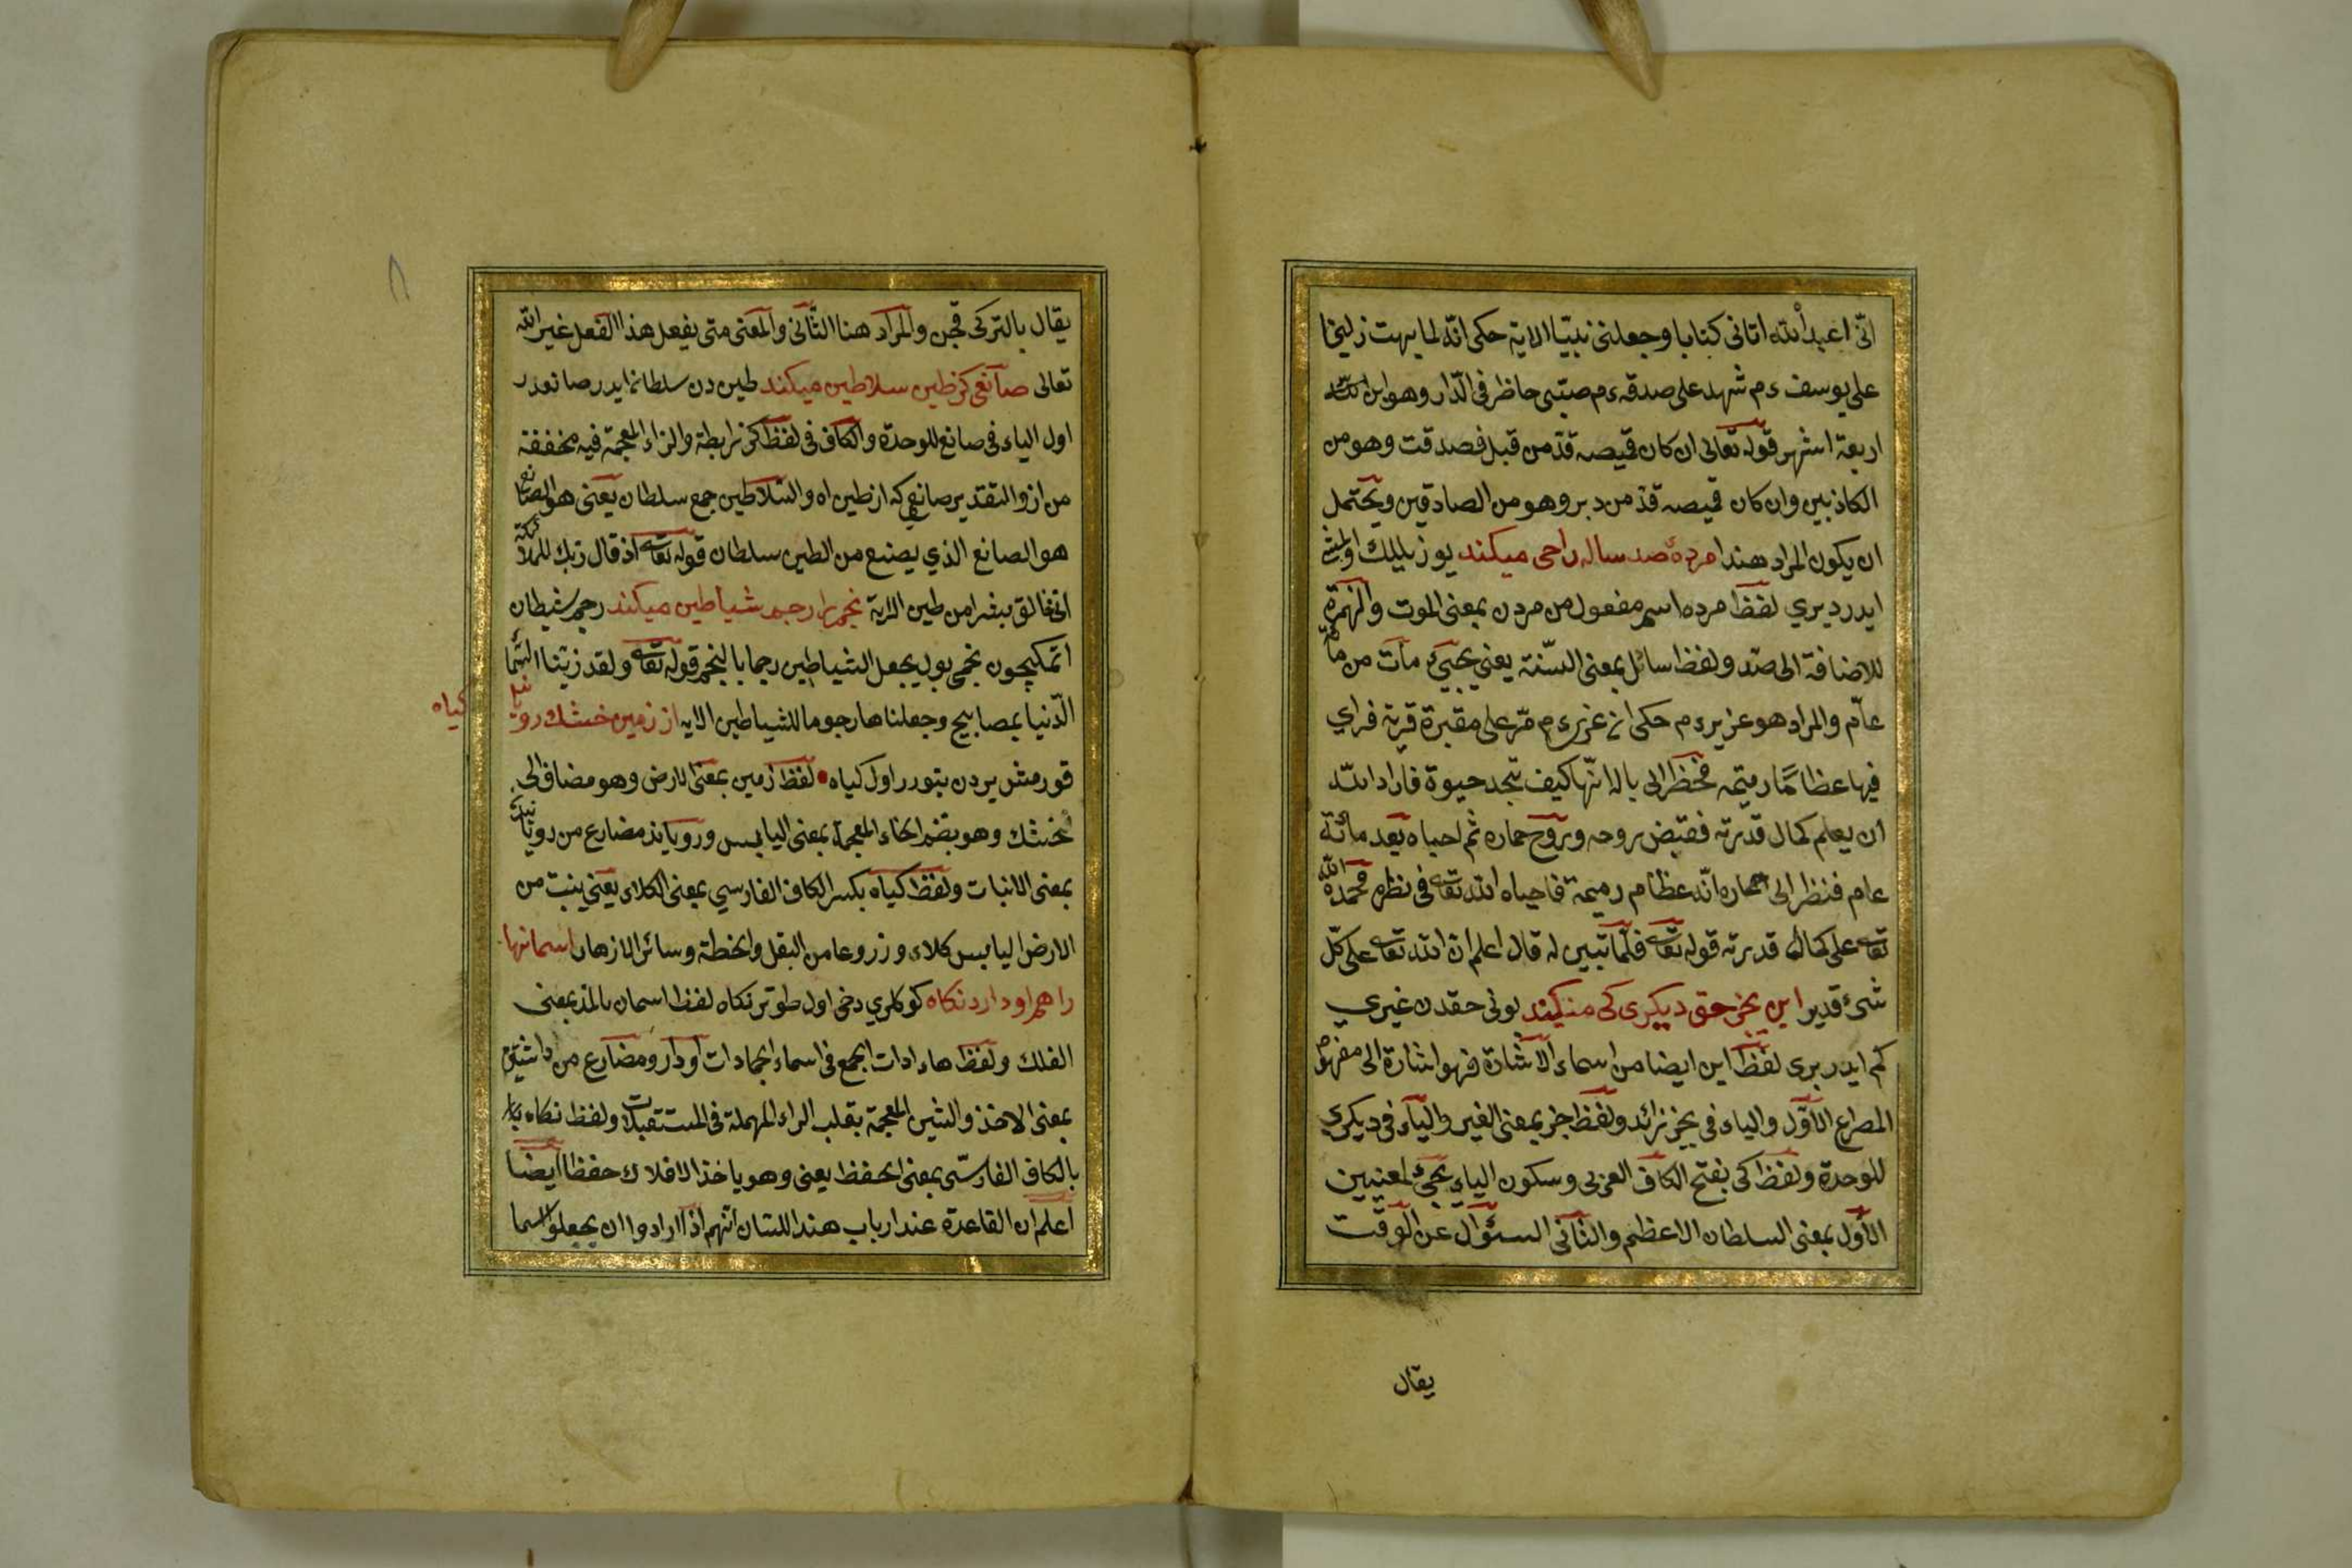 انّى اعبد الله اتانى كتابا وجعلنى نبيّا الاية حكى انّه لما بهت زليخا
على يوسف ءم شهد على صدقه ءم صبّى حاظر فى الدّار وهو ابن
اربعة اشهر قوله تعالى ان كان قميصه قدّ من قبل فصدقت وهو من
الكاذبين وان كان قميصه قدّ من دبر وهو من الصادقين ويحتمل
ان يكون المراد هندا مردهٔ صد ساله راحى ميكند يوز ييللك اولمش
ايدر ديري لفظ مرده اسم مفعول من مردن بمعنى الموت والهمزة
للاضافة الى صد ولفظ سائل بمعنى السّنة يعنى يحيى مات من مائة
عام والمراد هو عزير ءم حكى ان عزير ءم مرّ على مقبرة قرية فراي
فيها عظامًا رميمه فخظر الى باله انّها كيف تجد حيوة فاراد الله
ان يعلم كمال قدرته فقبض روحه وروح حماره ثم احياه بعد مائة
عام فنظر الى حماره انّه عظام رميمة فاحياه الله تعه فى نظره فحمد الله
تعه على كمال قدرته قوله تعه فلمّا تبين له قال اعلم انّ الله تعه على كلّ
شئ قدير اين بخر حق ديكرى كى ميكند بونى حقدن غيري
كم ايدر برى لفظ اين ايضا من اسماء الاشارة فهو اشارة الى مفهوم
المصراع الاوّل والياء فى بخر زائد ولفظ جز بمعنى الغير والياء فى ديكري
للوحدة ولفظ كى بفتح الكاف العربى وسكون الياء يجئ لمعنيين
الاوّل بمعنى السلطان الاعظم والثانى السئوال عن الوقت
يقال
يقال بالتركى قچن والمراد هنا الثّانى والمعنى متى يفعل هذا الفعل غير الله
تعالى صانعى كز طين سلاطين ميكند طين دن سلطانا ايدر صانعدر
اول الياء فى صانع للوحدة والكاف فى لفظ كز رابطة والزاء المعجمة فيه مخففة
من از والتقدير صانعى كه از طين اه والسّلاطين جمع سلطان يعنى هو الصانع
هو الصانع الذي يصنع من الطين سلطان قوله تعه اذ قال ربّك للملائكة
انى خالق بشرا من طين الاية نجم را رجم شياطين ميكند رجم شيطان
اتمكيچون نجمى بول يجعل الشياطين رجما بالنجم قوله تعه ولقد زيّنا السّما
الدّنيا بمصابيح وجعلناها رجوما للشياطين الايه از زمين خشك روياند
كياه
قورمش يردن بتورر اول كياه لفظ زمين بمعنى الارض وهو مضاف الى
خشك وهو بضم الخاء المعجمة بمعنى اليابس وروياند مضارع من رويانيدن
بمعنى الانبات ولفظ كياه بكسر الكاف الفارسي بمعنى الكلاء يعنى ينبت من
الارض اليابس كلاء وزروعا من البقل والخطة وسائر الازهار اسمانها
را هم او دارد نكاه كوكلري دخى اول طوتر نكاه لفظ اسمان بالمدّ بمعنى
الفلك ولفظ هاء ادات الجمع فى اسماء الجمادات او دارو مضارع من داشتن
بمعنى الاخذ والشين المعجمة بقلب الراء المهملة فى المستقبلات ولفظ نكاه
بالكاف الفارسّى بمعنى الحفظ يعنى وهو ياخذ الافلاك حفظا ايضا
اعلم ان القاعدة عند ارباب هندا للسّان انّهم اذا ارادوا ان يجعلوا اسما